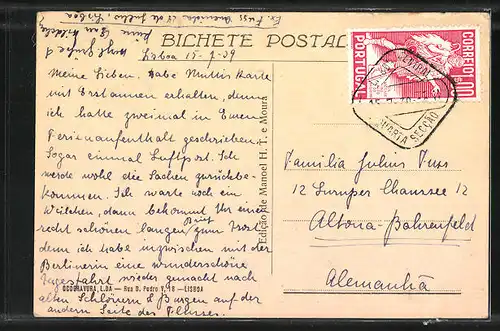 BILHETE POSTAL
Lisboa 15-7-39
Meine Lieben. Habe Muttis Karte
mit Erstaunen erhalten, denn
ich hatte zweimal in Euren
Ferienaufenthalt geschrieben.
Sogar einmal Luftpost. Ich
werde wohl die Sachen zurückbe-
kommen. Ich warte noch ein
Weilchen, dann bekommt Ihr einen
recht schönen langen Brief zum Trost
denn ich habe inzwischen mit der
Berlinerin eine wunderschöne
wieder gemacht nach
allen Schlössern & Burgen auf der
andern Seite des Flusses.
OCOGRAVURA, L.DA — Rua D. Pedro V, 18 — LISBOA
Edição de Manoel H. T. e Moura
CORREIO 1.00
PORTUGAL
QUARTA SECÇÃO
Familia Julius Fuss
12 Luruper Chaussee 12
Altona-Bahrenfeld
Alemanhã